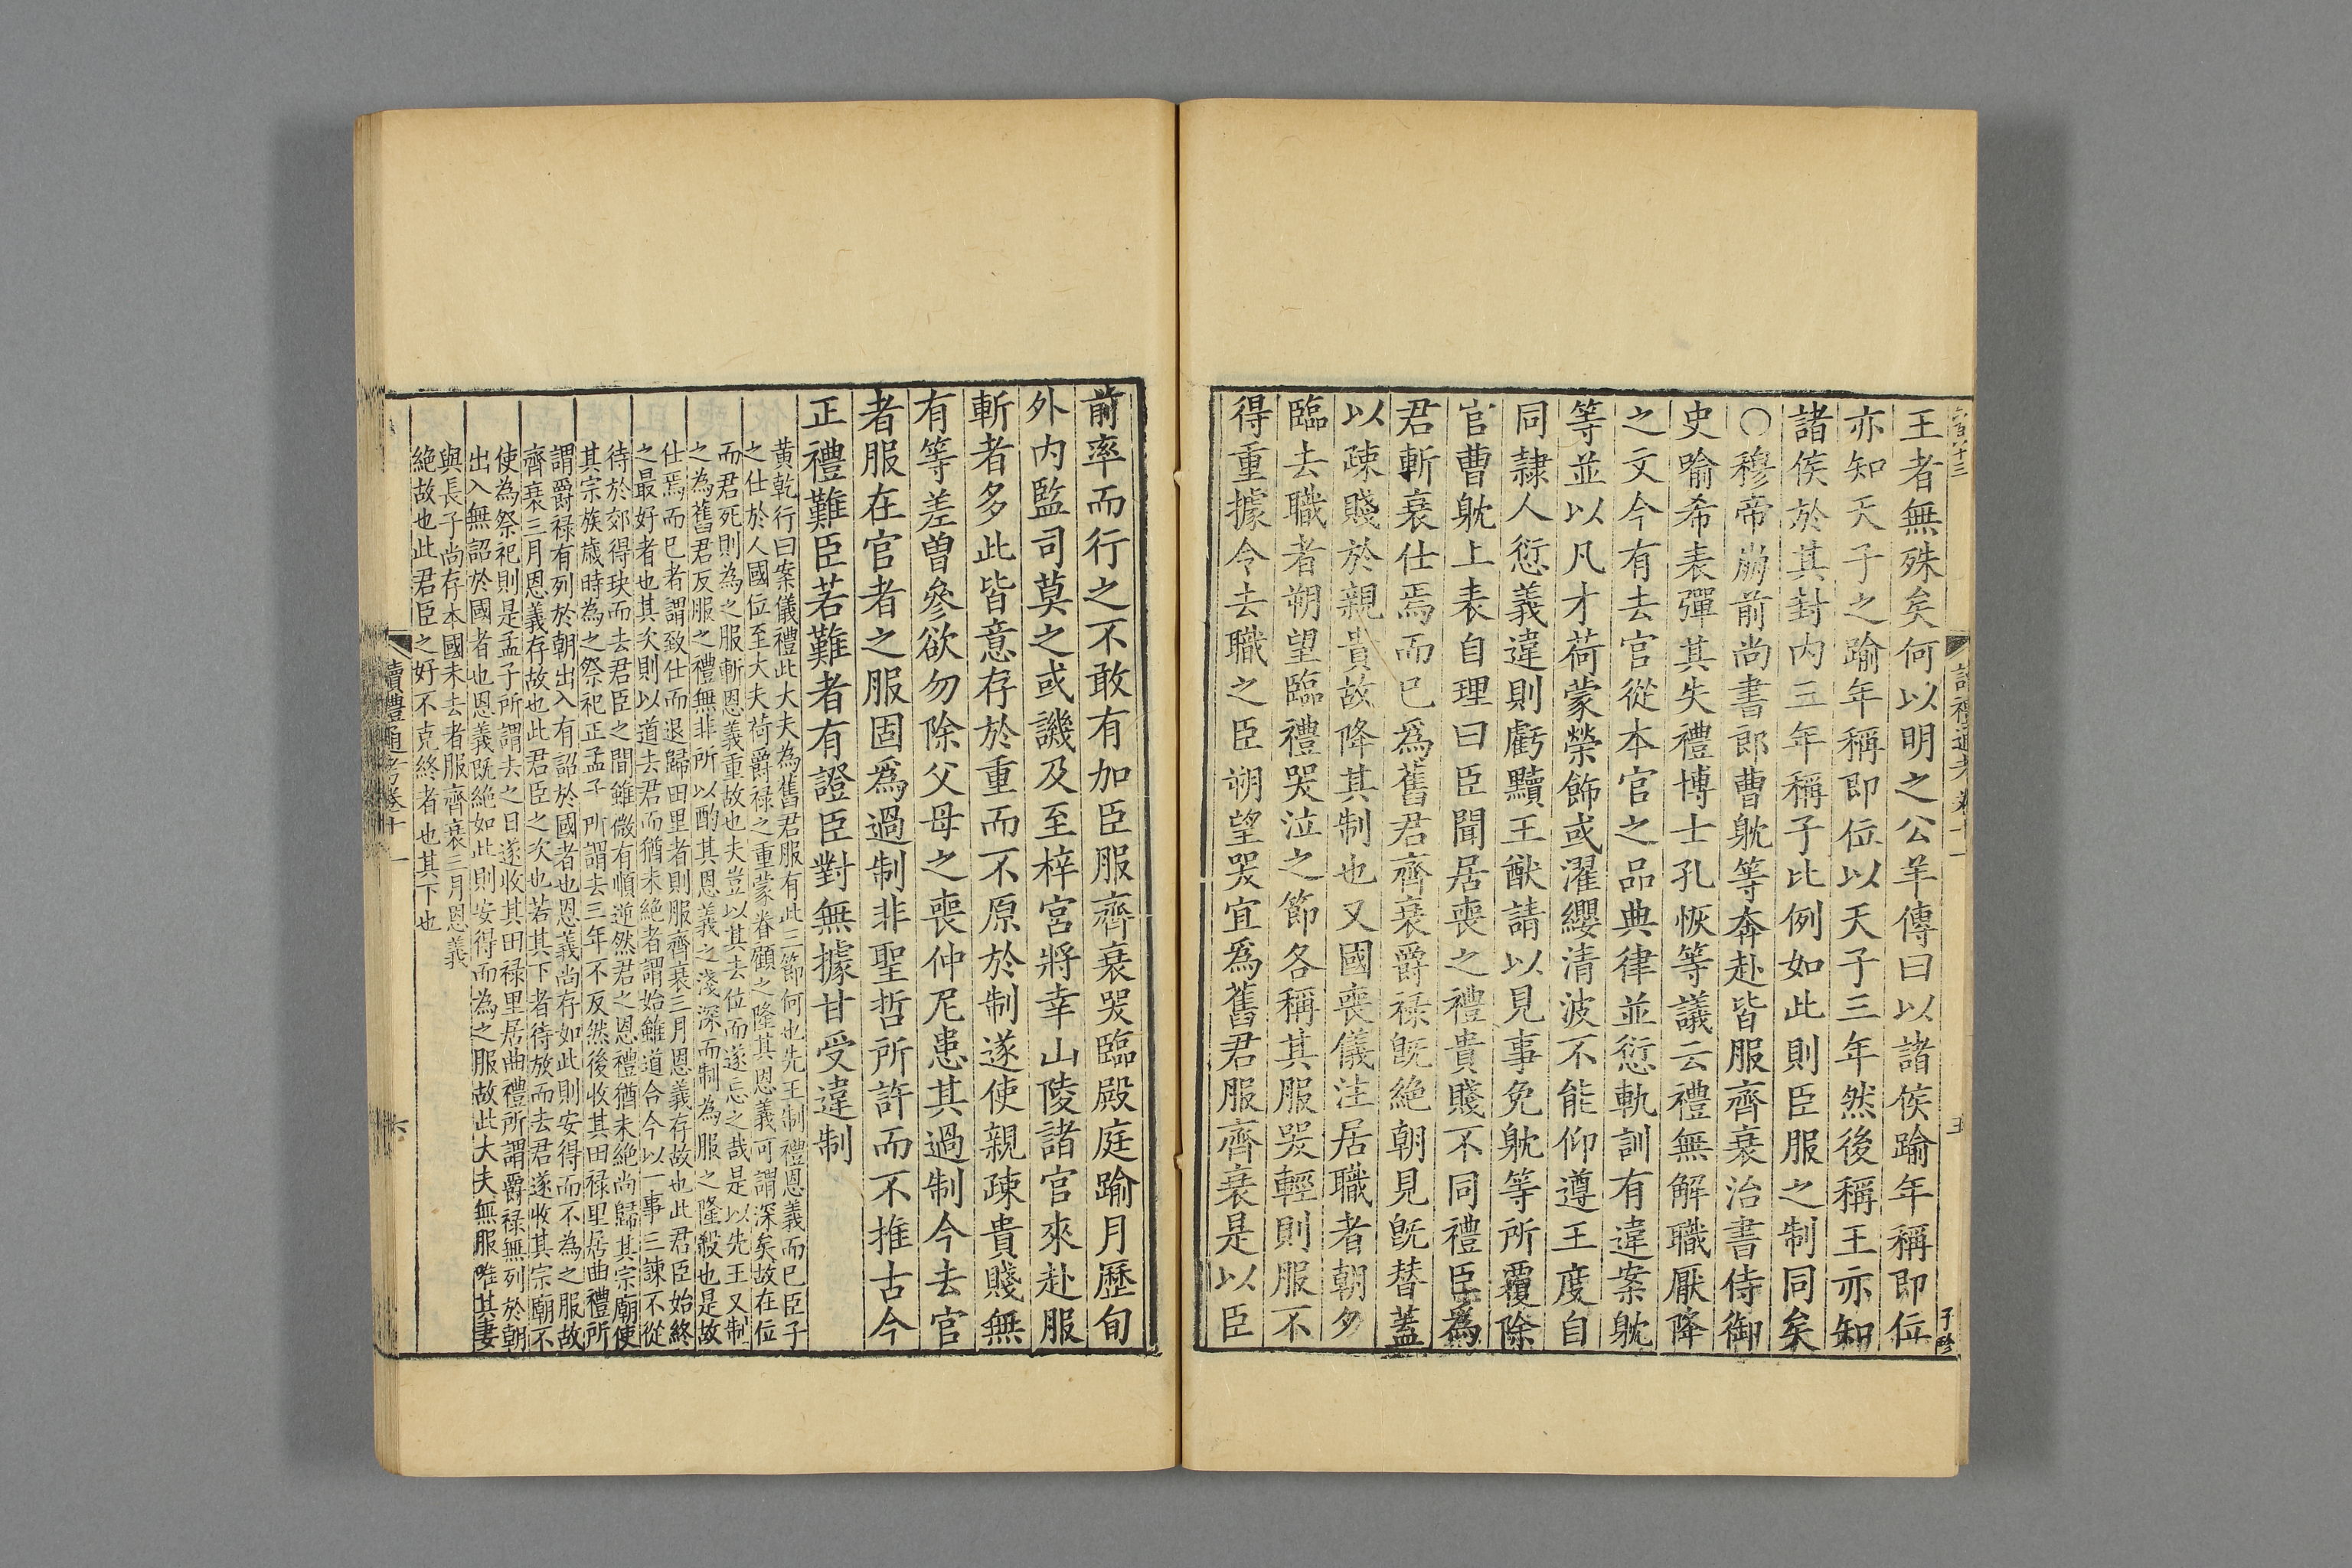 王者無殊矣何以明之公羊傳曰以諸侯踰年稱即位
亦知天子之踰年稱即位以天子三年然後稱王亦知
諸侯於其封内三年稱子比例如此則臣服之制同矣
〇穆帝崩前尚書郎曹躭等奔赴皆服齊衰治書侍御
史喻希表彈其失禮博士孔恢等議云禮無解職厭降
之文今有去官從本官之品典律並愆軌訓有違案躭
等並以凡才荷蒙榮飾或濯纓清波不能仰遵王度自
同隷人愆義違則虧黷王猷請以見事免躭等所覆除
官曹躭上表自理曰臣聞居喪之禮貴賤不同禮臣爲
君斬衰仕焉而已爲舊君齊衰爵祿旣絶朝見旣替蓋
以疎賤於親貴故降其制也又國喪儀注居職者朝夕
臨去職者朔望臨禮哭泣之節各稱其服哭輕則服不
得重據令去職之臣朔望哭宜爲舊君服齊衰是以臣
前率而行之不敢有加臣服齊衰哭臨殿庭踰月歷旬
外内監司莫之或譏及至梓宮將幸山陵諸官來赴服
斬者多此皆意存於重而不原於制遂使親疎貴賤無
有等差曾參欲勿除父母之喪仲尼患其過制今去官
者服在官者之服固爲過制非聖哲所許而不推古今
正禮難臣若難者有證臣對無據甘受違制
黃乾行曰案儀禮此大夫為舊君服有此三節何也先王制禮恩義而已臣子
之仕於人國位至大夫荷爵祿之重蒙眷顧之隆其恩義可謂深矣故在位
而君死則為之服斬恩義重故也夫豈以其去位而遂忘之哉是以先王又制
之為舊君反服之禮無非所以酌其恩義之淺深而制為服之隆殺也是故
仕焉而已者謂致仕而退歸田里者則服齊衰三月恩義存故也此君臣始終
之最好者也其次則以道去君而猶未絶者謂始雖道合今以一事三諫不從
待於郊得玦而去君臣之間雖微有順逆然君之恩禮猶未絶尚歸其宗廟使
其宗族歲時為之祭祀正孟子所謂去三年不反然後收其田祿里居曲禮所
謂爵祿有列於朝出入有詔於國者也恩義尚存如此則安得而不為之服故
齊衰三月恩義存故也此君臣之次也若其下者待放而去君遂收其宗廟不
使為祭祀則是孟子所謂去之日遂收其田祿里居曲禮所謂爵祿無列於朝
出入無詔於國者也恩義旣絶如此則安得而為之服故此大夫無服唯其妻
與長子尚存本國未去者服齊衰三月恩義
絶故也此君臣之好不克終者也其下也
讀禮通考卷十一
六